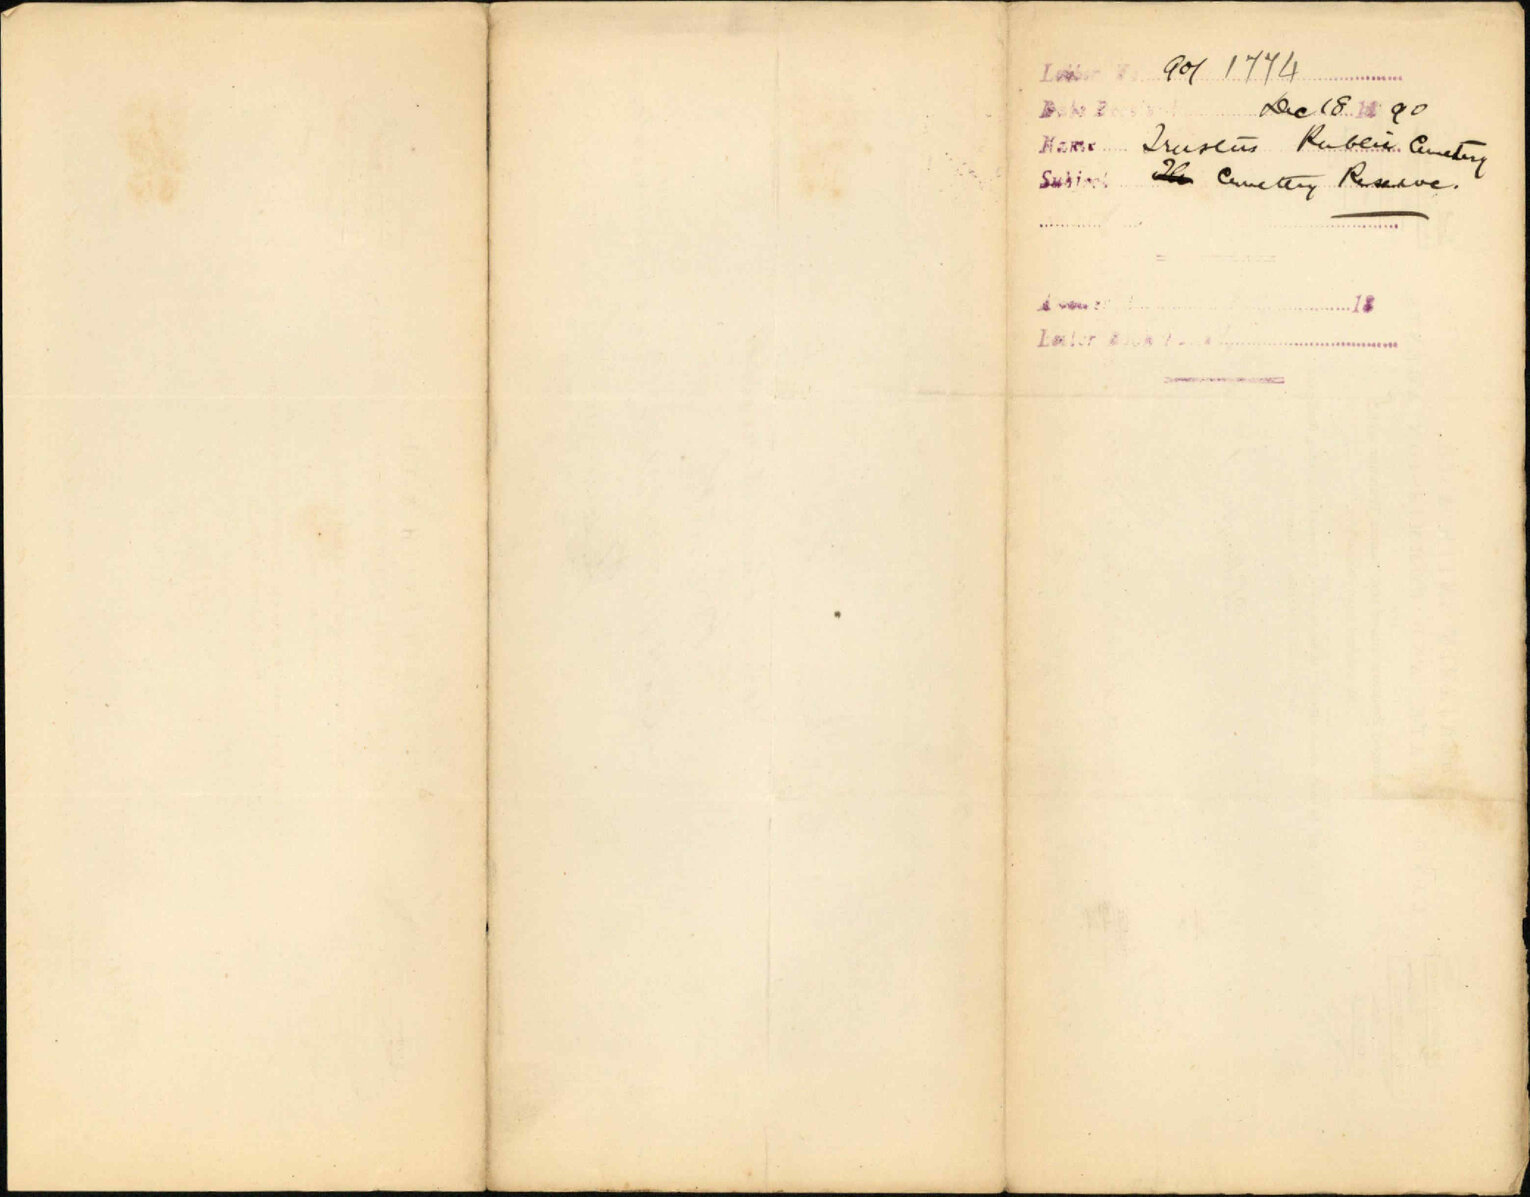 Letter No. 90/1774
Date Received Dec 18 18 90
Name Trustees Public Cemetery
Subject Cemetery Reserve.
Answered 18
Letter Book